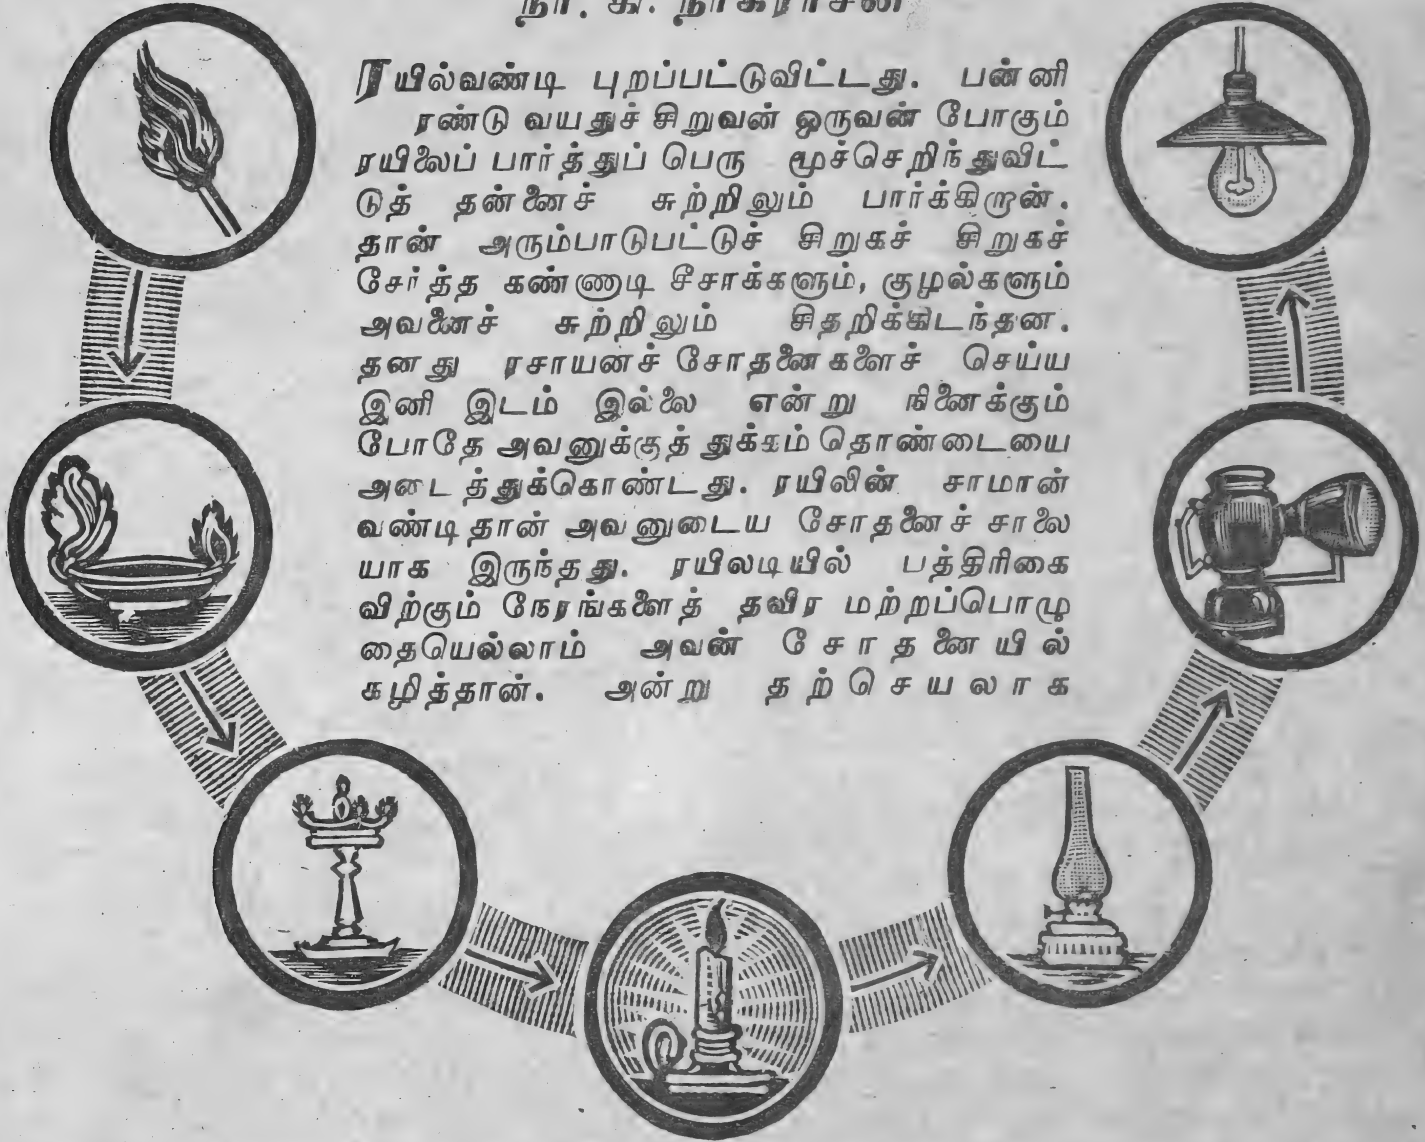 நா. கி. நாகராசன்
ரயில்வண்டி புறப்பட்டுவிட்டது. பன்னி
ரண்டு வயதுச் சிறுவன் ஒருவன் போகும்
ரயிலைப் பார்த்துப் பெரு மூச்செறிந்துவிட்
டுத் தன்னைச் சுற்றிலும் பார்க்கிறான்.
தான் அரும்பாடுபட்டுச் சிறுகச் சிறுகச்
சேர்த்த கண்ணாடி சீசாக்களும், குழல்களும்
அவனைச் சுற்றிலும் சிதறிக்கிடந்தன.
தனது ரசாயனச் சோதனைகளைச் செய்ய
இனி இடம் இல்லை என்று நினைக்கும்
போதே அவனுக்குத் துக்கம் தொண்டையை
அடைத்துக்கொண்டது. ரயிலின் சாமான்
வண்டிதான் அவனுடைய சோதனைச் சாலை
யாக இருந்தது. ரயிலடியில் பத்திரிகை
விற்கும் நேரங்களைத் தவிர மற்றப்பொழு
தையெல்லாம் அவன் சோதனையில்
கழித்தான். அன்று தற்செயலாக